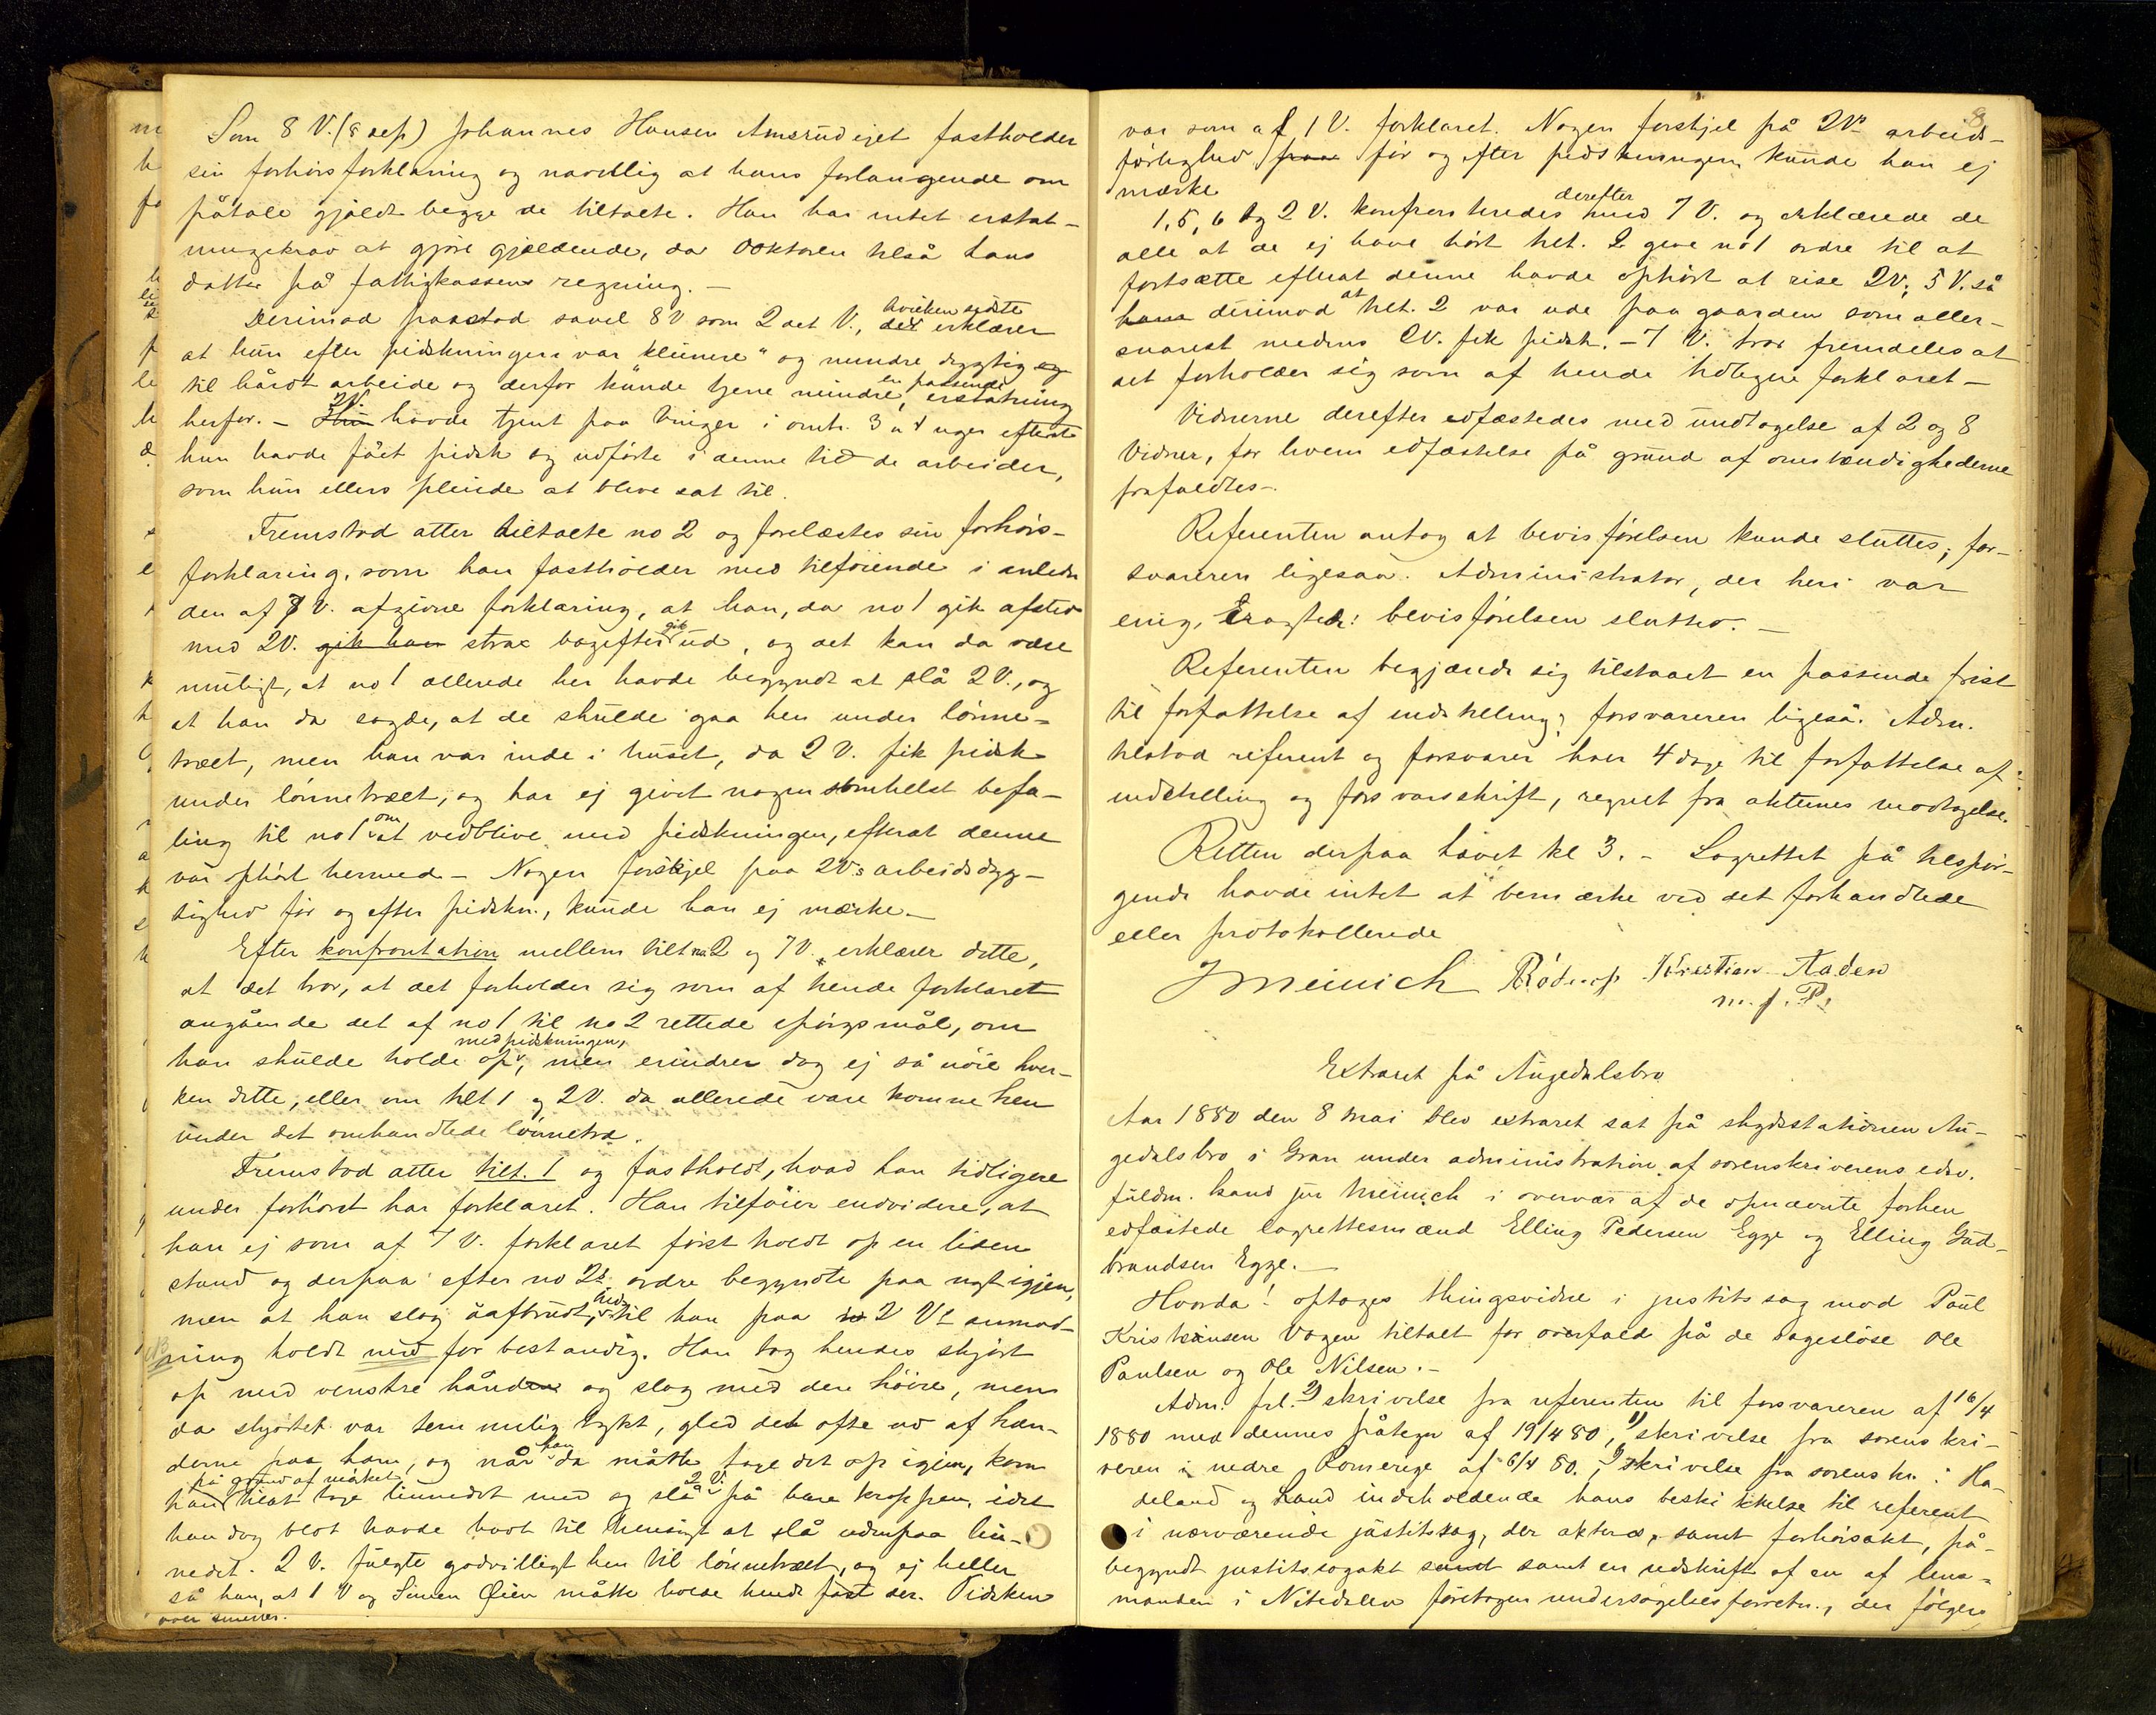 Som 8 V. (8 dep) Johannes Hansen Amsrudejet fastholder
sin forhørsforklaring og navnlig at hans forlangende om
påtale gjaldt begge de tiltalte. Han har intet erstat-
ningskrav at gjøre gjældende, da doktoren tilså hans
datter på fattigkassens regning. -
Derimod paastod savel 8 V som 2det V., hvilken sidste erklærer
at hun efter pidskningen var "klenere" og mindre dygtig
til hårdt arbeide og derfor kunde tjene mindre, en passende erstatning
herfor. - 2V. havde tjent paa Vinger i omtr. 3 a 4 uger efterat
hun havde fået pidsk og udførte i denne tid de arbeider,
som hun ellers pleiede at blive sat til.
Fremstod atter tiltalte no 2 og forelæstes sin forhørs-
forklaring, som han fastholder med tilføiende i anledn
den af 7 V. afgivne forklaring, at han, da no 1 gik afsted
med 2V. gik han strax bagefter gik ud, og det kan da være
muligt, at no 1 allerede her havde begyndt at slå 2 V., og
at han da sagde, at de skulde gaa hen under lønne-
træet, men han var inde i huset, da 2 V. fik pidsk
under lønnetræet, og har ej givet nogen somhelst befa-
ling til no 1 om at vedblive med pidskningen, efterat denne
var ophørt hermed - Nogen forskjel paa 2Vs arbeidsdyg-
tighed før og efter pidskn., kunde han ej mærke -
Efter konfrontation mellem tilt no 2 og 7 V. erklærer dette,
at det tror, at det forholder sig som af hende forklaret
angående det af no 1 til no 2 rettede spørgsmål, om
han skulde holde op med pidskningen, men erindrer dog ej så nøie hver-
ken dette, eller om tilt 1 og 2 V. da allerede vare komne hen
under det omhandlede lønnetræ.
Fremstod atter tilt. 1 og fastholdt, hvad han tidligere
under forhøret har forklaret. Han tilføier endvidere, at
han ej som af 7 V. forklaret først holdt op en liden
stund og derpaa efter no 2s ordre begyndte paa nyt igjen,
men at han slog uafbrudt, indtil han paa 2 Vs anmod-
ning holdt med for bestandig. Han tog hendes skjørt
op med venstre hånden og slog med den høire, men
da skjørtet var temmelig tykt, gled det ofte ud af hæn-
derne paa ham, og når han da måtte tage det op igjen, kom
han på grund af mørket til at tage linnedet med og slå 2 V. på bare kroppen, idet
han dog blot havde havt til hensigt at slå udenpaa lin-
nedet. 2 V. fulgte godvilligt hen til lønnetræet, og ej heller
så han, at 1 V og Simen Øien måtte holde hende fast der. Pidsken
over smerter.
8
var som af 1 V. forklaret. Nogen forskjel på 2Vs arbeids-
førlighed før og efter pidskningen kunde han ej
mærke
1, 5, 6 og 2 V. konfronteredes derefter med 7 V. og erklærede de
alle at de ej have hørt tilt. 2 give no 1 ordre til at
fortsætte efterat denne havde ophørt at rise 2V; 5 V. så
derimod at tilt. 2 var ude paa gaarden som aller-
snarest medens 2V. fik pidsk. - 7 V. tror fremdeles at
det forholder sig som af hende tidligere forklaret -
Vidnerne derefter edfæstedes med undtagelse af 2 og 8
Vidner, for hvem edfæstelse på grund af omstændighederne
frafaldtes -
Referenten antog at bevisførelsen kunde sluttes; for-
svareren ligesaa. Administrator, der heri var
enig, Eragted: bevisførelsen sluttet. -
Referenten begjærede sig tilstaaet en passende frist
til forfattelse af indstilling; forsvareren ligeså. Adm.
tilstod referent og forsvarer hver 4 dage til forfattelse af
indstilling og forsvarsskrift, regnet fra akternes modtagelse.
Retten derpaa hævet kl 3. - Lagrettet på tilspør-
gende havde intet at bemærke ved det forhandlede
eller protokollerede
Meinich Kristian Aaden
m. p. P.
Extraret på Augedalsbro
Aar 1880 den 8 Mai blev extraret sat på skydsstationen Au-
gedalsbro i Gran under administration af sorenskriverens edsv.
fuldm. kand jur Meinich i overvær af de opnævnte forhen
edfæstede lagrettesmænd Elling Pedersen Egge og Elling Gud-
brandsen Egge. -
Hvorda! optoges thingsvidne i justitssag mod Paul
Kristiansen Vogen tiltalt for overfald på de sagesløse Ole
Paulsen og Ole Nilsen. -
Adm. frl. 2) skrivelse fra referenten til forsvareren af 16/4
1880 med dennes påtegn af 19/4 80, 1) skrivelse fra sorenskri-
veren i nedre Romerige af 6/4 80., skrivelse fra sorenskr. i Ha-
deland og Land indeholdende hans beskikkelse til referent
i nærværende justitssag, der akteres, samt forhørsakt, på-
begyndt justitssogakt samt en udskrift af en af lens-
manden i Nitedalen foretagen undersøgelsesforretn., der følger